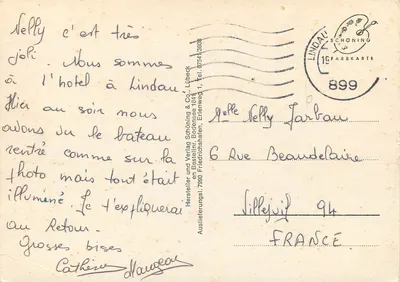 Nelly c'est très
joli. Nous sommes
à l'hotel à Lindau.
Hier au soir nous
avons vu le bateau
rentré comme sur la
photo mais tout était
illuminé. Je t'expliquerai
au Retour.
Grosses bises
Catherine
Hersteller und Verlag Schöning & Co., Lübeck
Auslieferung: 7990 Friedrichshafen,
SCHÖNING
FARBKARTE
LINDAU
899
Melle Nelly Jarbau
6 Rue Beaudelaire
Villejuif 94
FRANCE